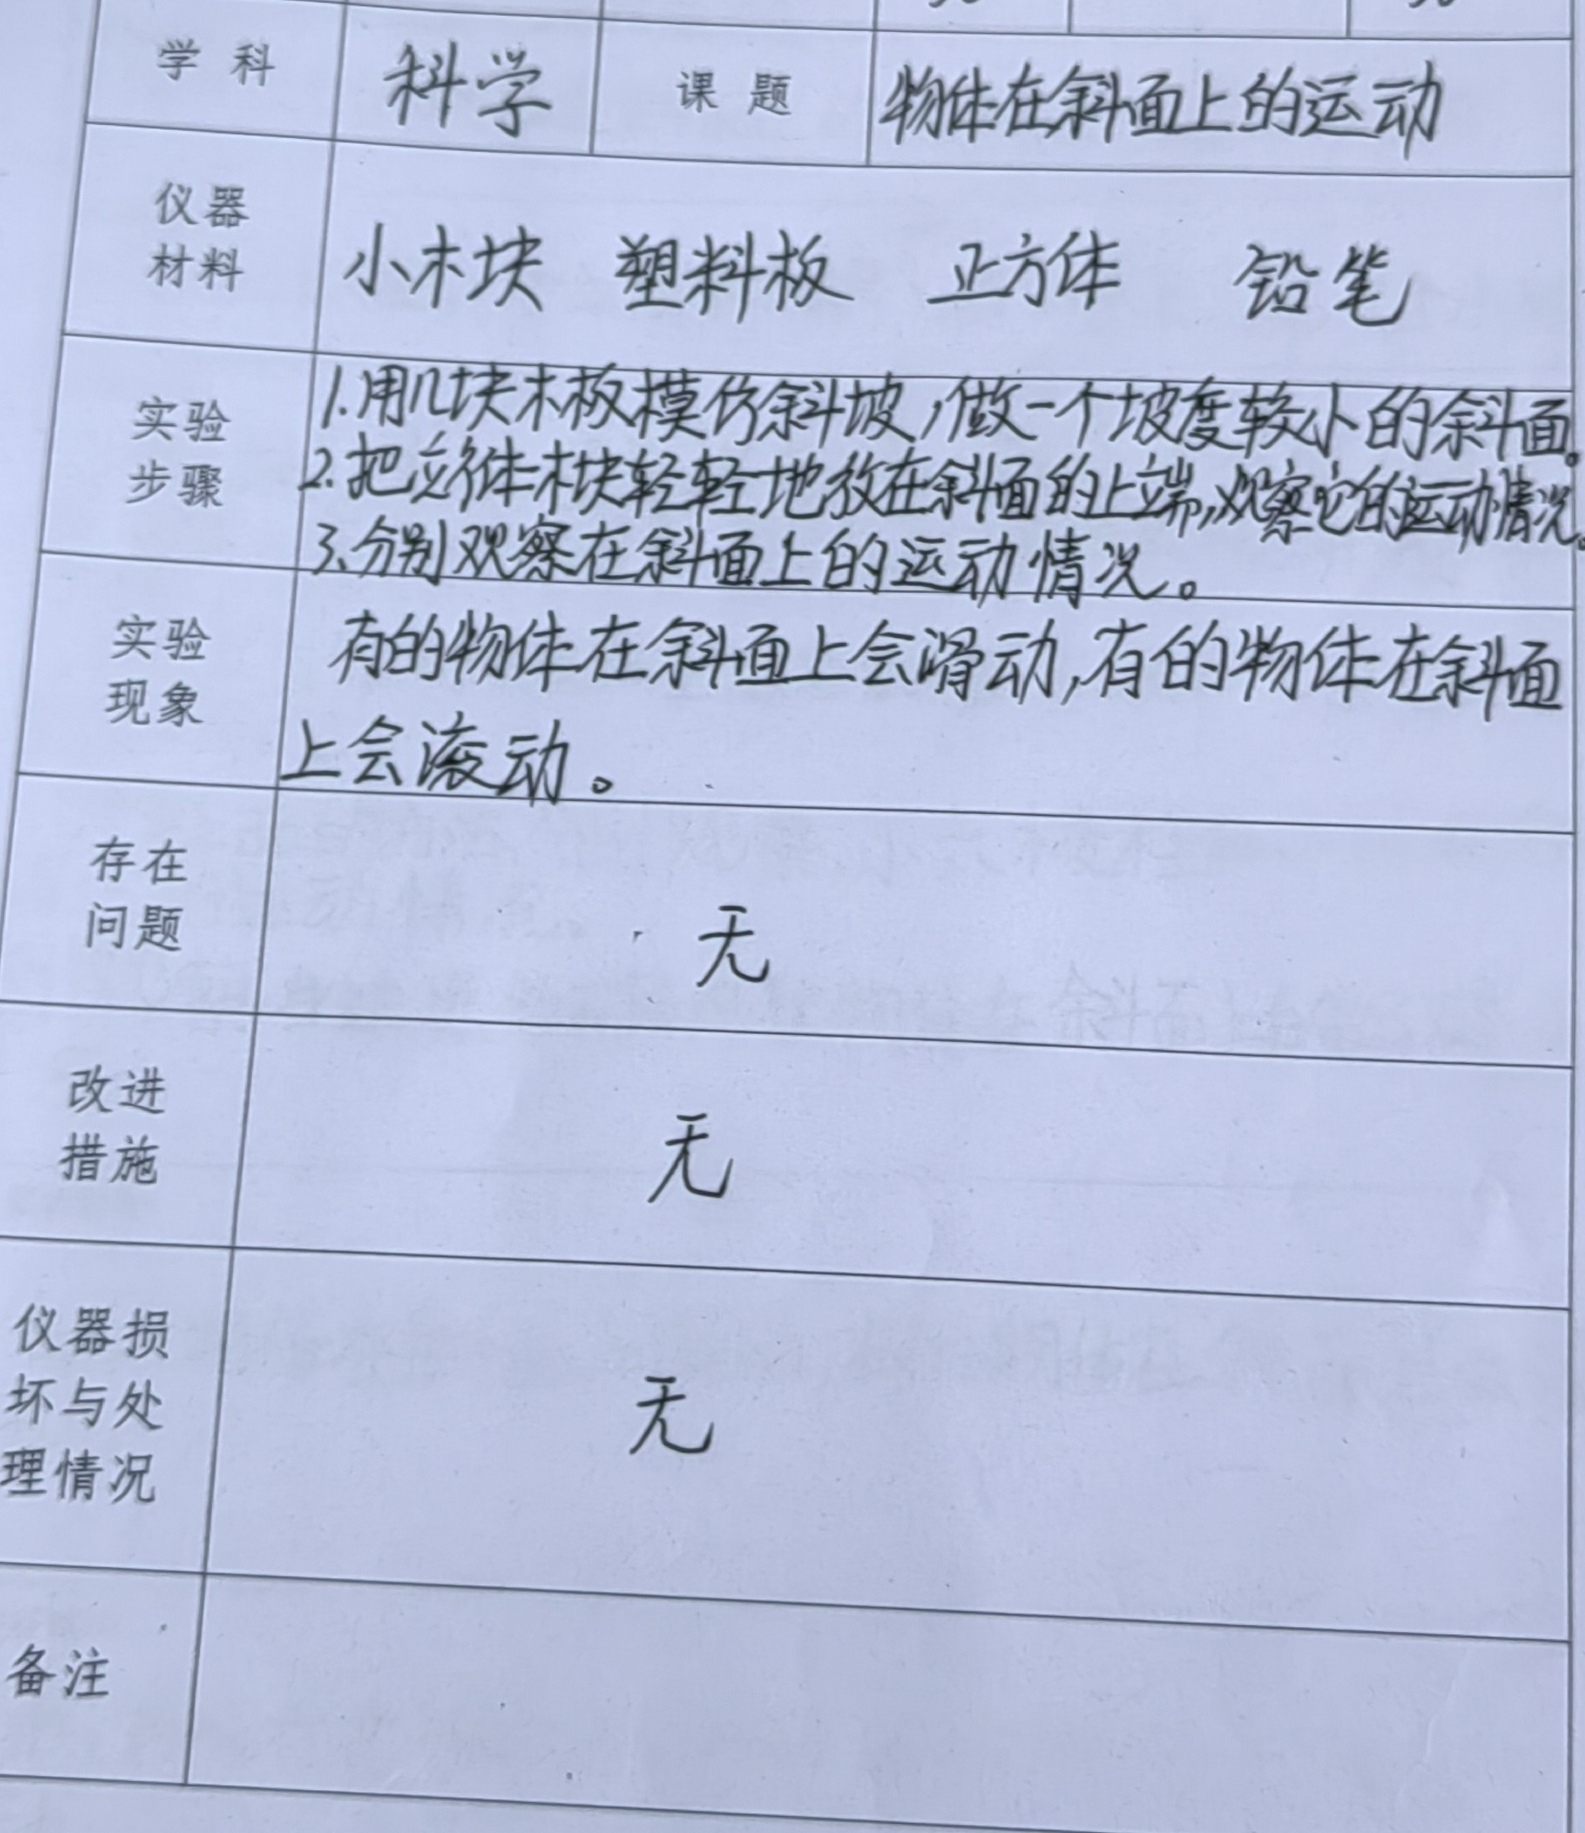 学科 科学 课题 物体在斜面上的运动
仪器
材料
小木块 塑料板 正方体 铅笔
实验
步骤
1.用几块木板模仿斜坡,做一个坡度较小的斜面。
2.把立体木块轻轻地放在斜面的上端,观察它的运动情况。
3.分别观察在斜面上的运动情况。
实验
现象
有的物体在斜面上会滑动,有的物体在斜面
上会滚动。
存在
问题
无
改进
措施
无
仪器损
坏与处
理情况
无
备注